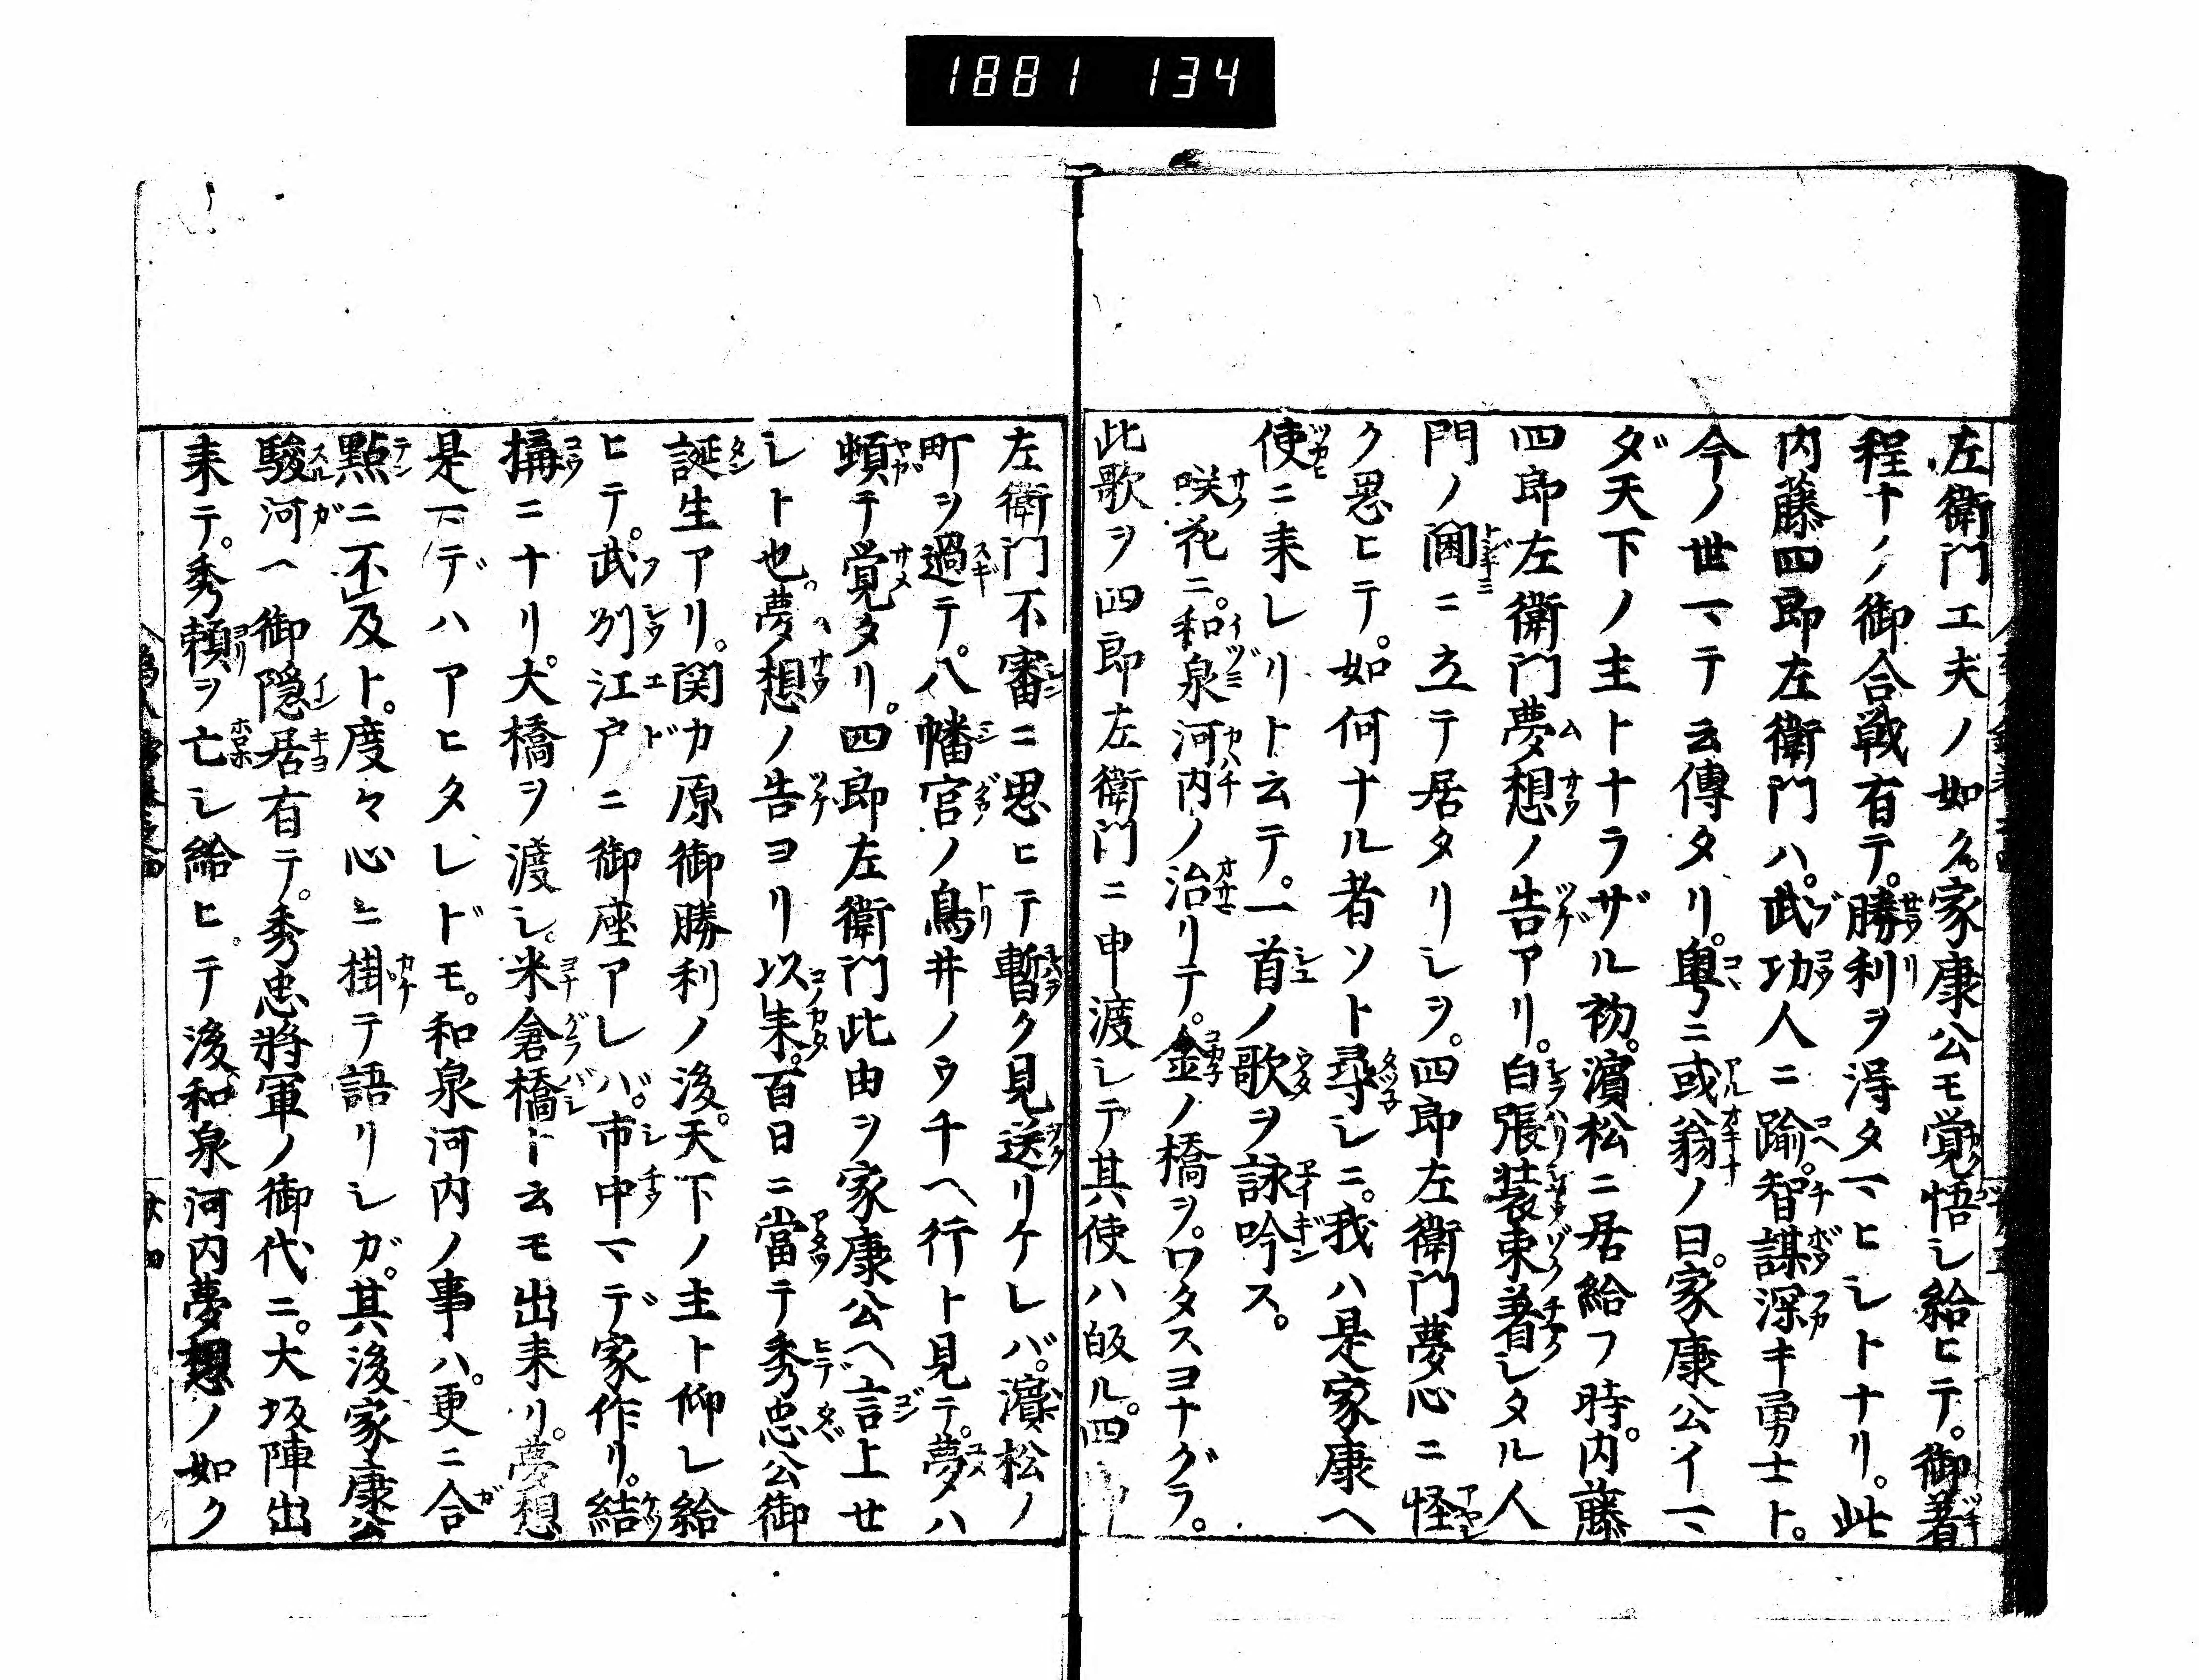 1881 134
左衛門工夫ノ如ク。家康公モ覚悟シ給ヒテ。御着
程ナノ御合戦有テ。勝利ヲ得タマヒシトナリ。此
内藤四郎左衛門ハ。武功人ニ踰。智謀深キ勇士ト。
今ノ世マテ云傳タリ。粤ニ或翁ノ曰。家康公イマ
ダ天下ノ主トナラザル初。濵松ニ居給フ時。内藤
四郎左衛門夢想ノ告アリ。白張装束著シタル人
門ノ閫ニ立テ居タリシヲ。四郎左衛門夢心ニ怪
ク思ヒテ。如何ナル者ソト尋シニ。我ハ是家康ヘ
使ニ来レリト云テ。一首ノ歌ヲ詠吟ス。
咲花ニ。和泉河内ノ治リテ。金ノ橋ヲ。ワタスヨナグラ。
此歌ヲ四郎左衛門ニ申渡シテ其使ハ皈ル。四
左衛門不審ニ思ヒテ暫ク見送リケレバ。濵松ノ
町ヲ過テ。八幡宮ノ鳥井ノウチヘ行ト見テ。夢ハ
頓テ覚タリ。四郎左衛門此由ヲ家康公ヘ言上セ
シト也。夢想ノ告ヨリ以来。百日ニ當テ秀忠公御
誕生アリ。関カ原御勝利ノ後。天下ノ主ト仰レ給
ヒテ。武刕江戸ニ御座アレバ。市中マデ家作リ。結
搆ニナリ。大橋ヲ渡シ。米倉橋ト云モ出来リ。夢想
是マデハアヒタレドモ。和泉河内ノ事ハ。更ニ合
點ニ不及ト。度々心ニ掛テ語リシガ。其後家康公
駿河ヘ御隠居有テ。秀忠將軍ノ御代ニ。大坂陣出
来テ。秀頼ヲ亡シ給ヒテ後和泉河内夢想ノ如ク